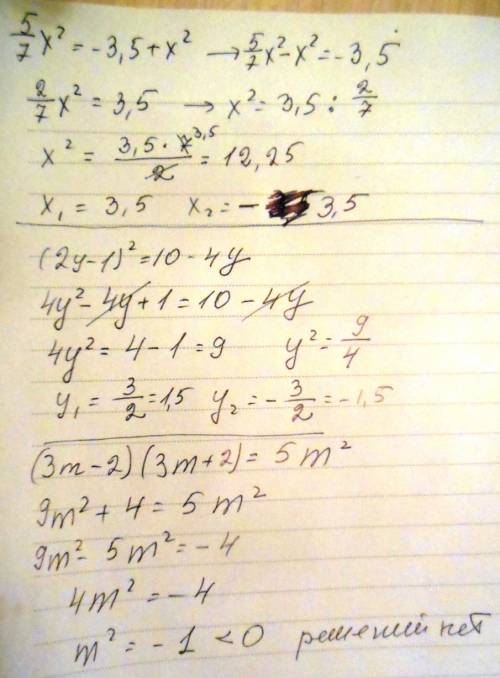 5/7 x² = -3,5 + x² → 5/7 x² - x² = -3,5
2/7 x² = 3,5 → x² = 3,5 : 2/7
x² = 3,5 · 7 3,5 / 2 = 12,25
x₁ = 3,5 x₂ = - 3,5
(2y-1)² = 10 - 4y
4y² - 4y + 1 = 10 - 4y
4y² = 4 - 1 = 9 y² = 9/4
y₁ = 3/2 = 1,5 y₂ = - 3/2 = -1,5
(3m-2)(3m+2) = 5m²
9m² + 4 = 5m²
9m² - 5m² = -4
4m² = -4
m² = -1 < 0 решений нет